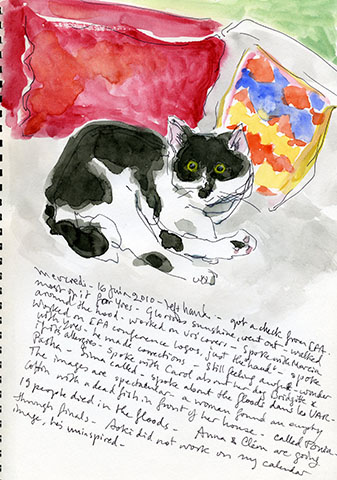 mercredi - 16 juin 2010 - left hand - got a check from EFA.
most of it for Yves - Glorious sunshine, went out - walked
around the hood. worked on vis covers - spoke with Marcia
worked on EFA conference logos, just the hand - spoke
with Yves, he made corrections - Still feeling awful - from
Thor's allergies - spoke with Carol about her day Bridgitte
Pasha - Sima called - spoke about the floods dans le VAR -
The images are spectacular - a woman found an empty
coffin with a dead fish in front of her house - called
19 people died in the floods - Anna & Clém are going
through finals - Aoki did not work on my calendar
image, he's uninspired -